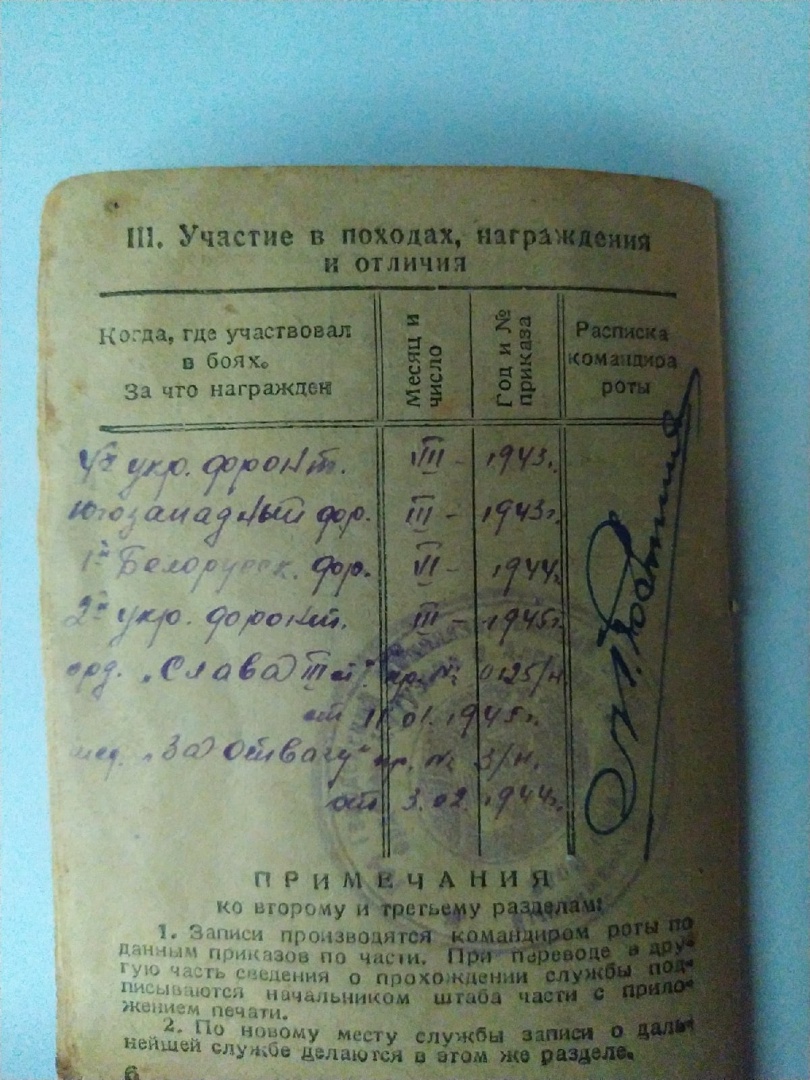 III. Участие в походах, награждения
и отличия
Когда, где участвовал
в боях.
За что награжден
Месяц и
число
Год и №
приказа
Расписка
командира
роты
4й укр. фронт. VII - 1943г.
Югозападный фр. III - 1943г.
1й Белорусск. фр. VI - 1944г.
2й укр. фронт. III - 1945г.
орд. „Слава III ст" пр. № 0125/н
от 11 01. 1945г.
мед. „За отвагу" пр. № 3/н.
от 3.02. 1944г.
ПРИМЕЧАНИЯ
ко второму и третьему разделам:
1. Записи производятся командиром роты по
данным приказов по части. При переводе в дру-
гую часть сведения о прохождении службы под-
писываются начальником штаба части с прило-
жением печати.
2. По новому месту службы записи о даль-
нейшей службе делаются в этом же разделе.
6